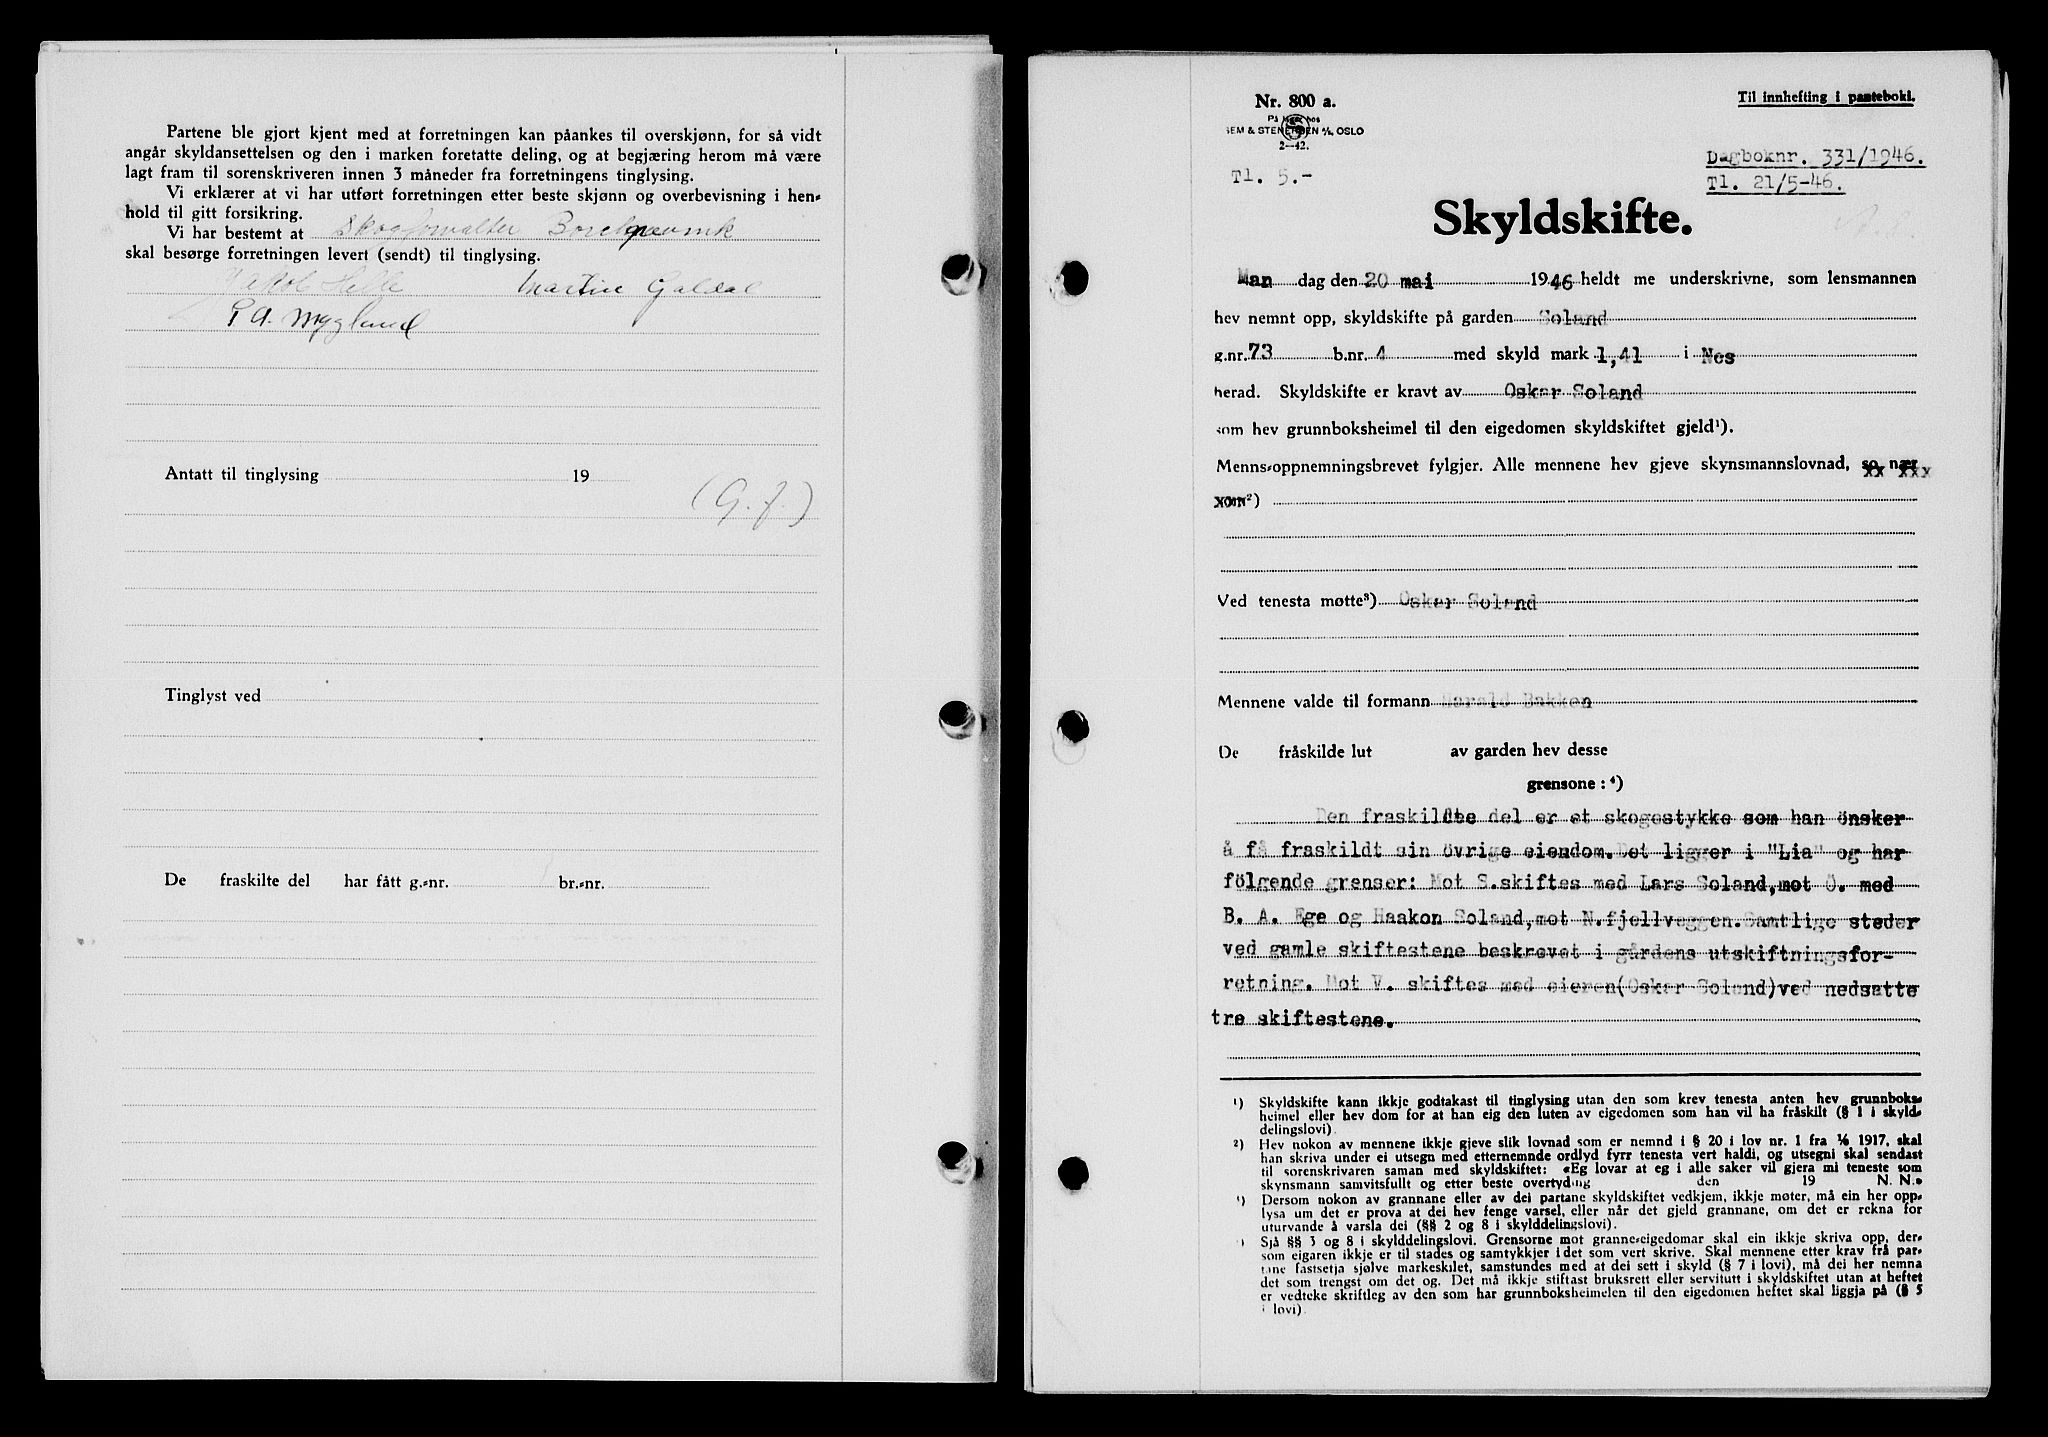 Partene ble gjort kjent med at forretningen kan påankes til overskjønn, for så vidt
angår skyldansettelsen og den i marken foretatte deling, og at begjæring herom må være
lagt fram til sorenskriveren innen 3 måneder fra forretningens tinglysing.
Vi erklærer at vi har utført forretningen etter beste skjønn og overbevisning i hen-
hold til gitt forsikring.
Vi har bestemt at Skogforvalter
skal besørge forretningen levert (sendt) til tinglysing.
Jakob Helle Martin Galdal
P A. Mygland
Antatt til tinglysing 19
(G. f.)
Tinglyst ved
De fraskilte del har fått g.-nr. br.-nr.
Nr. 800 a.
På lager hos
SEM & STENERSEN A/S, OSLO
2-42.
Tl. 5.-
Til innhefting i panteboki.
Dagboknr. 331/1946.
Tl. 21/5-46.
Skyldskifte.
Man dag den 20 mai 1946 heldt me underskrivne, som lensmannen
hev nemnt opp, skyldskifte på garden Soland
g.nr. 73 b.nr. 4 med skyld mark 1,41 i Nes
herad. Skyldskifte er kravt av Oskar Soland
som hev grunnboksheimel til den eigedomen skyldskiftet gjeld¹).
Menns-oppnemningsbrevet fylgjer. Alle mennene hev gjeve skynsmannslovnad, so nær
som²)
Ved tenesta møtte³) Oskar Soland
Mennene valde til formann Harald Bakken
De fråskilde lut av garden hev desse
grensone: ⁴)
Den fraskildte del er et skogestykke som han önsker
å få fraskildt sin övrige eiendom. Det ligger i "Lia" og har
fölgende grenser: Mot S.skiftes med Lars Soland, mot Ö. med
B. A. Ege og Haakon Soland, mot N.fjellveggen.Samtlige steder
ved gamle skiftestene beskrevet i gårdens utskiftningsfor-
retning. Mot V. skiftes med eieren(Oskar Soland)ved nedsatte
tre skiftestene.
¹) Skyldskifte kann ikkje godtakast til tinglysing utan den som krev tenesta anten hev grunnboks-
heimel eller hev dom for at han eig den luten av eigedomen som han vil ha fråskilt (§ 1 i skyld-
delingslovi).
²) Hev nokon av mennene ikkje gjeve slik lovnad som er nemnd i § 20 i lov nr. 1 fra 1/6 1917, skal
han skriva under ei utsegn med etternemnde ordlyd fyrr tenesta vert haldi, og utsegni skal sendast
til sorenskrivaren saman med skyldskiftet: «Eg lovar at eg i alle saker vil gjera mi teneste som
skynsmann samvitsfullt og etter beste overtyding den 19 N. N.»
³) Dersom nokon av grannane eller av dei partane skyldskiftet vedkjem, ikkje møter, må ein her opp-
lysa um det er prova at dei hev fenge varsel, eller når det gjeld grannane, om det er rekna for
uturvande å varsla dei (§§ 2 og 8 i skylddelingslovi).
) Sjå §§ 3 og 8 i skylddelingslovi. Grensorne mot granne-eigedomar skal ein ikkje skriva opp, der-
som eigaren ikkje er til stades og samtykkjer i det som vert skrive. Skal mennene etter krav frå par-
tane fastsetja sjølve markeskilet, samstundes med at dei sett i skyld (§ 7 i lovi), må dei her nemna
det som trengst om det og. Det må ikkje stiftast bruksrett eller servitutt i skyldskiftet utan at heftet
er vedteke skriftleg av den som har grunnboksheimelen til den eigedomen heftet skal liggja på (§ 5
i lovi).